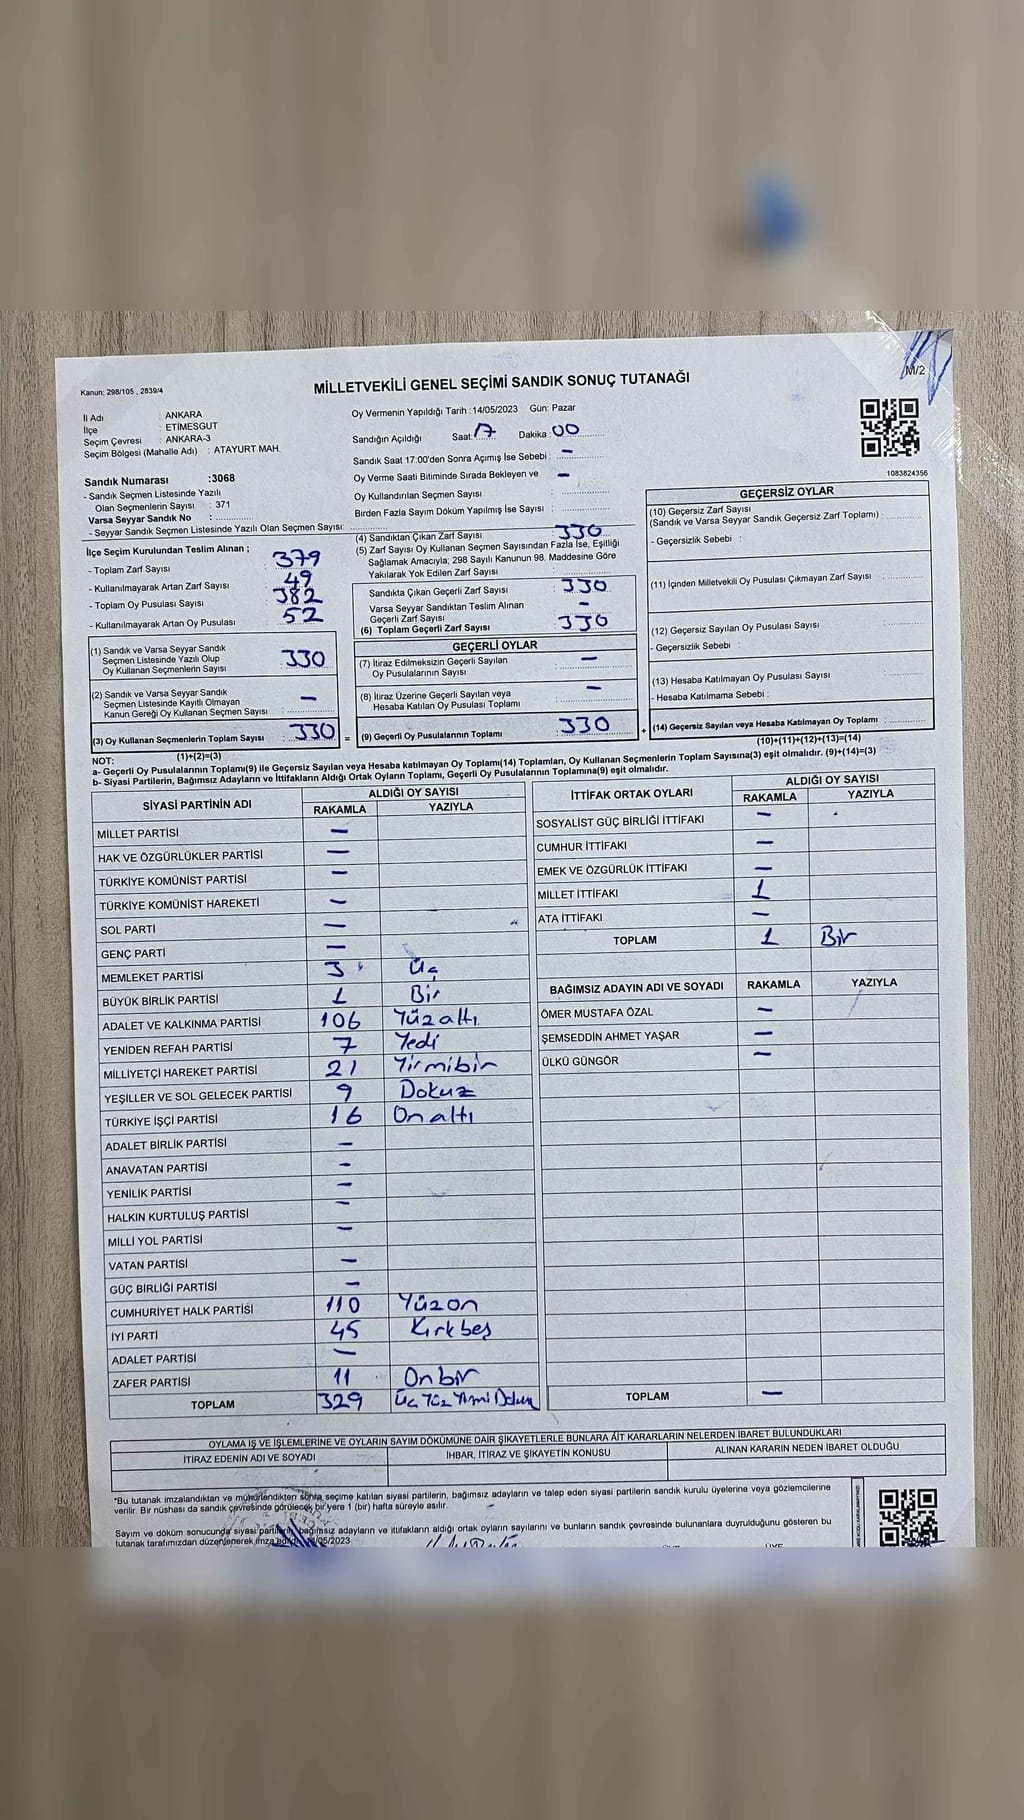 M/2
Kanun: 298/105 , 2839/4
MİLLETVEKİLİ GENEL SEÇİMİ SANDIK SONUÇ TUTANAĞI
1083824356
İl Adı : ANKARA
İlçe : ETİMESGUT
Seçim Çevresi : ANKARA-3
Seçim Bölgesi (Mahalle Adı) : ATAYURT MAH.
Sandık Numarası :3068
- Sandık Seçmen Listesinde Yazılı
Olan Seçmenlerin Sayısı : 371
Varsa Seyyar Sandık No :
- Seyyar Sandık Seçmen Listesinde Yazılı Olan Seçmen Sayısı:
Oy Vermenin Yapıldığı Tarih :14/05/2023 Gün: Pazar
Sandığın Açıldığı Saat: 17 Dakika : 00
Sandık Saat 17:00'den Sonra Açımış İse Sebebi : —
Oy Verme Saati Bitiminde Sırada Bekleyen ve —
Oy Kullandırılan Seçmen Sayısı :
Birden Fazla Sayım Döküm Yapılmış İse Sayısı :
İlçe Seçim Kurulundan Teslim Alınan ;
- Toplam Zarf Sayısı : 379
- Kullanılmayarak Artan Zarf Sayısı : 49
- Toplam Oy Pusulası Sayısı : 382
- Kullanılmayarak Artan Oy Pusulası : 52
(1) Sandık ve Varsa Seyyar Sandık
Seçmen Listesinde Yazılı Olup
Oy Kullanan Seçmenlerin Sayısı : 330
(2) Sandık ve Varsa Seyyar Sandık
Seçmen Listesinde Kayıtlı Olmayan
Kanun Gereği Oy Kullanan Seçmen Sayısı : —
(3) Oy Kullanan Seçmenlerin Toplam Sayısı : 330
(1)+(2)=(3)
(4) Sandıktan Çıkan Zarf Sayısı : 330
(5) Zarf Sayısı Oy Kullanan Seçmen Sayısından Fazla İse, Eşitliği
Sağlamak Amacıyla; 298 Sayılı Kanunun 98. Maddesine Göre
Yakılarak Yok Edilen Zarf Sayısı :
Sandıkta Çıkan Geçerli Zarf Sayısı : 330
Varsa Seyyar Sandıktan Teslim Alınan
Geçerli Zarf Sayısı : —
(6) Toplam Geçerli Zarf Sayısı : 330
GEÇERLİ OYLAR
(7) İtiraz Edilmeksizin Geçerli Sayılan
Oy Pusulalarının Sayısı : —
(8) İtiraz Üzerine Geçerli Sayılan veya
Hesaba Katılan Oy Pusulası Toplamı : —
= (9) Geçerli Oy Pusulalarının Toplamı : 330
GEÇERSİZ OYLAR
(10) Geçersiz Zarf Sayısı
(Sandık ve Varsa Seyyar Sandık Geçersiz Zarf Toplamı) :
- Geçersizlik Sebebi :
(11) İçinden Milletvekili Oy Pusulası Çıkmayan Zarf Sayısı :
(12) Geçersiz Sayılan Oy Pusulası Sayısı :
- Geçersizlik Sebebi :
(13) Hesaba Katılmayan Oy Pusulası Sayısı :
- Hesaba Katılmama Sebebi :
+ (14) Geçersiz Sayılan veya Hesaba Katılmayan Oy Toplamı :
(10)+(11)+(12)+(13)=(14)
NOT:
a- Geçerli Oy Pusulalarının Toplamı(9) ile Geçersiz Sayılan veya Hesaba Katılmayan Oy Toplamı(14) Toplamları, Oy Kullanan Seçmenlerin Toplam Sayısına(3) eşit olmalıdır. (9)+(14)=(3)
b- Siyasi Partilerin, Bağımsız Adayların ve İttifakların Aldığı Ortak Oyların Toplamı, Geçerli Oy Pusulalarının Toplamına(9) eşit olmalıdır.
SİYASİ PARTİNİN ADI ALDIĞI OY SAYISI
RAKAMLA YAZIYLA
MİLLET PARTİSİ —
HAK VE ÖZGÜRLÜKLER PARTİSİ —
TÜRKİYE KOMÜNİST PARTİSİ —
TÜRKİYE KOMÜNİST HAREKETİ —
SOL PARTİ —
GENÇ PARTİ —
MEMLEKET PARTİSİ 3 Üç
BÜYÜK BİRLİK PARTİSİ 1 Bir
ADALET VE KALKINMA PARTİSİ 106 Yüzaltı
YENİDEN REFAH PARTİSİ 7 Yedi
MİLLİYETÇİ HAREKET PARTİSİ 21 Yirmibir
YEŞİLLER VE SOL GELECEK PARTİSİ 9 Dokuz
TÜRKİYE İŞÇİ PARTİSİ 16 Onaltı
ADALET BİRLİK PARTİSİ —
ANAVATAN PARTİSİ —
YENİLİK PARTİSİ —
HALKIN KURTULUŞ PARTİSİ —
MİLLİ YOL PARTİSİ —
VATAN PARTİSİ —
GÜÇ BİRLİĞİ PARTİSİ —
CUMHURİYET HALK PARTİSİ 110 Yüzon
İYİ PARTİ 45 Kırkbeş
ADALET PARTİSİ —
ZAFER PARTİSİ 11 Onbir
TOPLAM 329 Üç Yüz
İTTİFAK ORTAK OYLARI ALDIĞI OY SAYISI
RAKAMLA YAZIYLA
SOSYALİST GÜÇ BİRLİĞİ İTTİFAKI —
CUMHUR İTTİFAKI —
EMEK VE ÖZGÜRLÜK İTTİFAKI —
MİLLET İTTİFAKI 1
ATA İTTİFAKI —
TOPLAM 1 Bir
BAĞIMSIZ ADAYIN ADI VE SOYADI RAKAMLA YAZIYLA
ÖMER MUSTAFA ÖZAL —
ŞEMSEDDİN AHMET YAŞAR —
ÜLKÜ GÜNGÖR —
TOPLAM —
OYLAMA İŞ VE İŞLEMLERİNE VE OYLARIN SAYIM DÖKÜMÜNE DAİR ŞİKAYETLERLE BUNLARA AİT KARARLARIN NELERDEN İBARET BULUNDUKLARI
İTİRAZ EDENİN ADI VE SOYADI İHBAR, İTİRAZ VE ŞİKAYETİN KONUSU ALINAN KARARIN NEDEN İBARET OLDUĞU
*Bu tutanak imzalandıktan ve mühürlendikten sonra seçime katılan siyasi partilerin, bağımsız adayların ve talep eden siyasi partilerin sandık kurulu üyelerine veya gözlemcilerine
verilir. Bir nüshası da sandık çevresinde görülecek bir yere 1 (bir) hafta süreyle asılır.
Sayım ve döküm sonucunda siyasi partilerin, bağımsız adayların ve ittifakların aldığı ortak oyların sayılarını ve bunların sandık çevresinde bulunanlara duyrulduğunu gösteren bu
tutanak tarafımızdan düzenlenerek imza